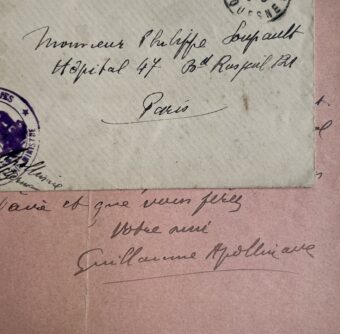 Monsieur Philippe Soupault
Hôpital 47 Bd Raspail 121
Paris
et que vous
Votre ami
Guillaume Apollinaire